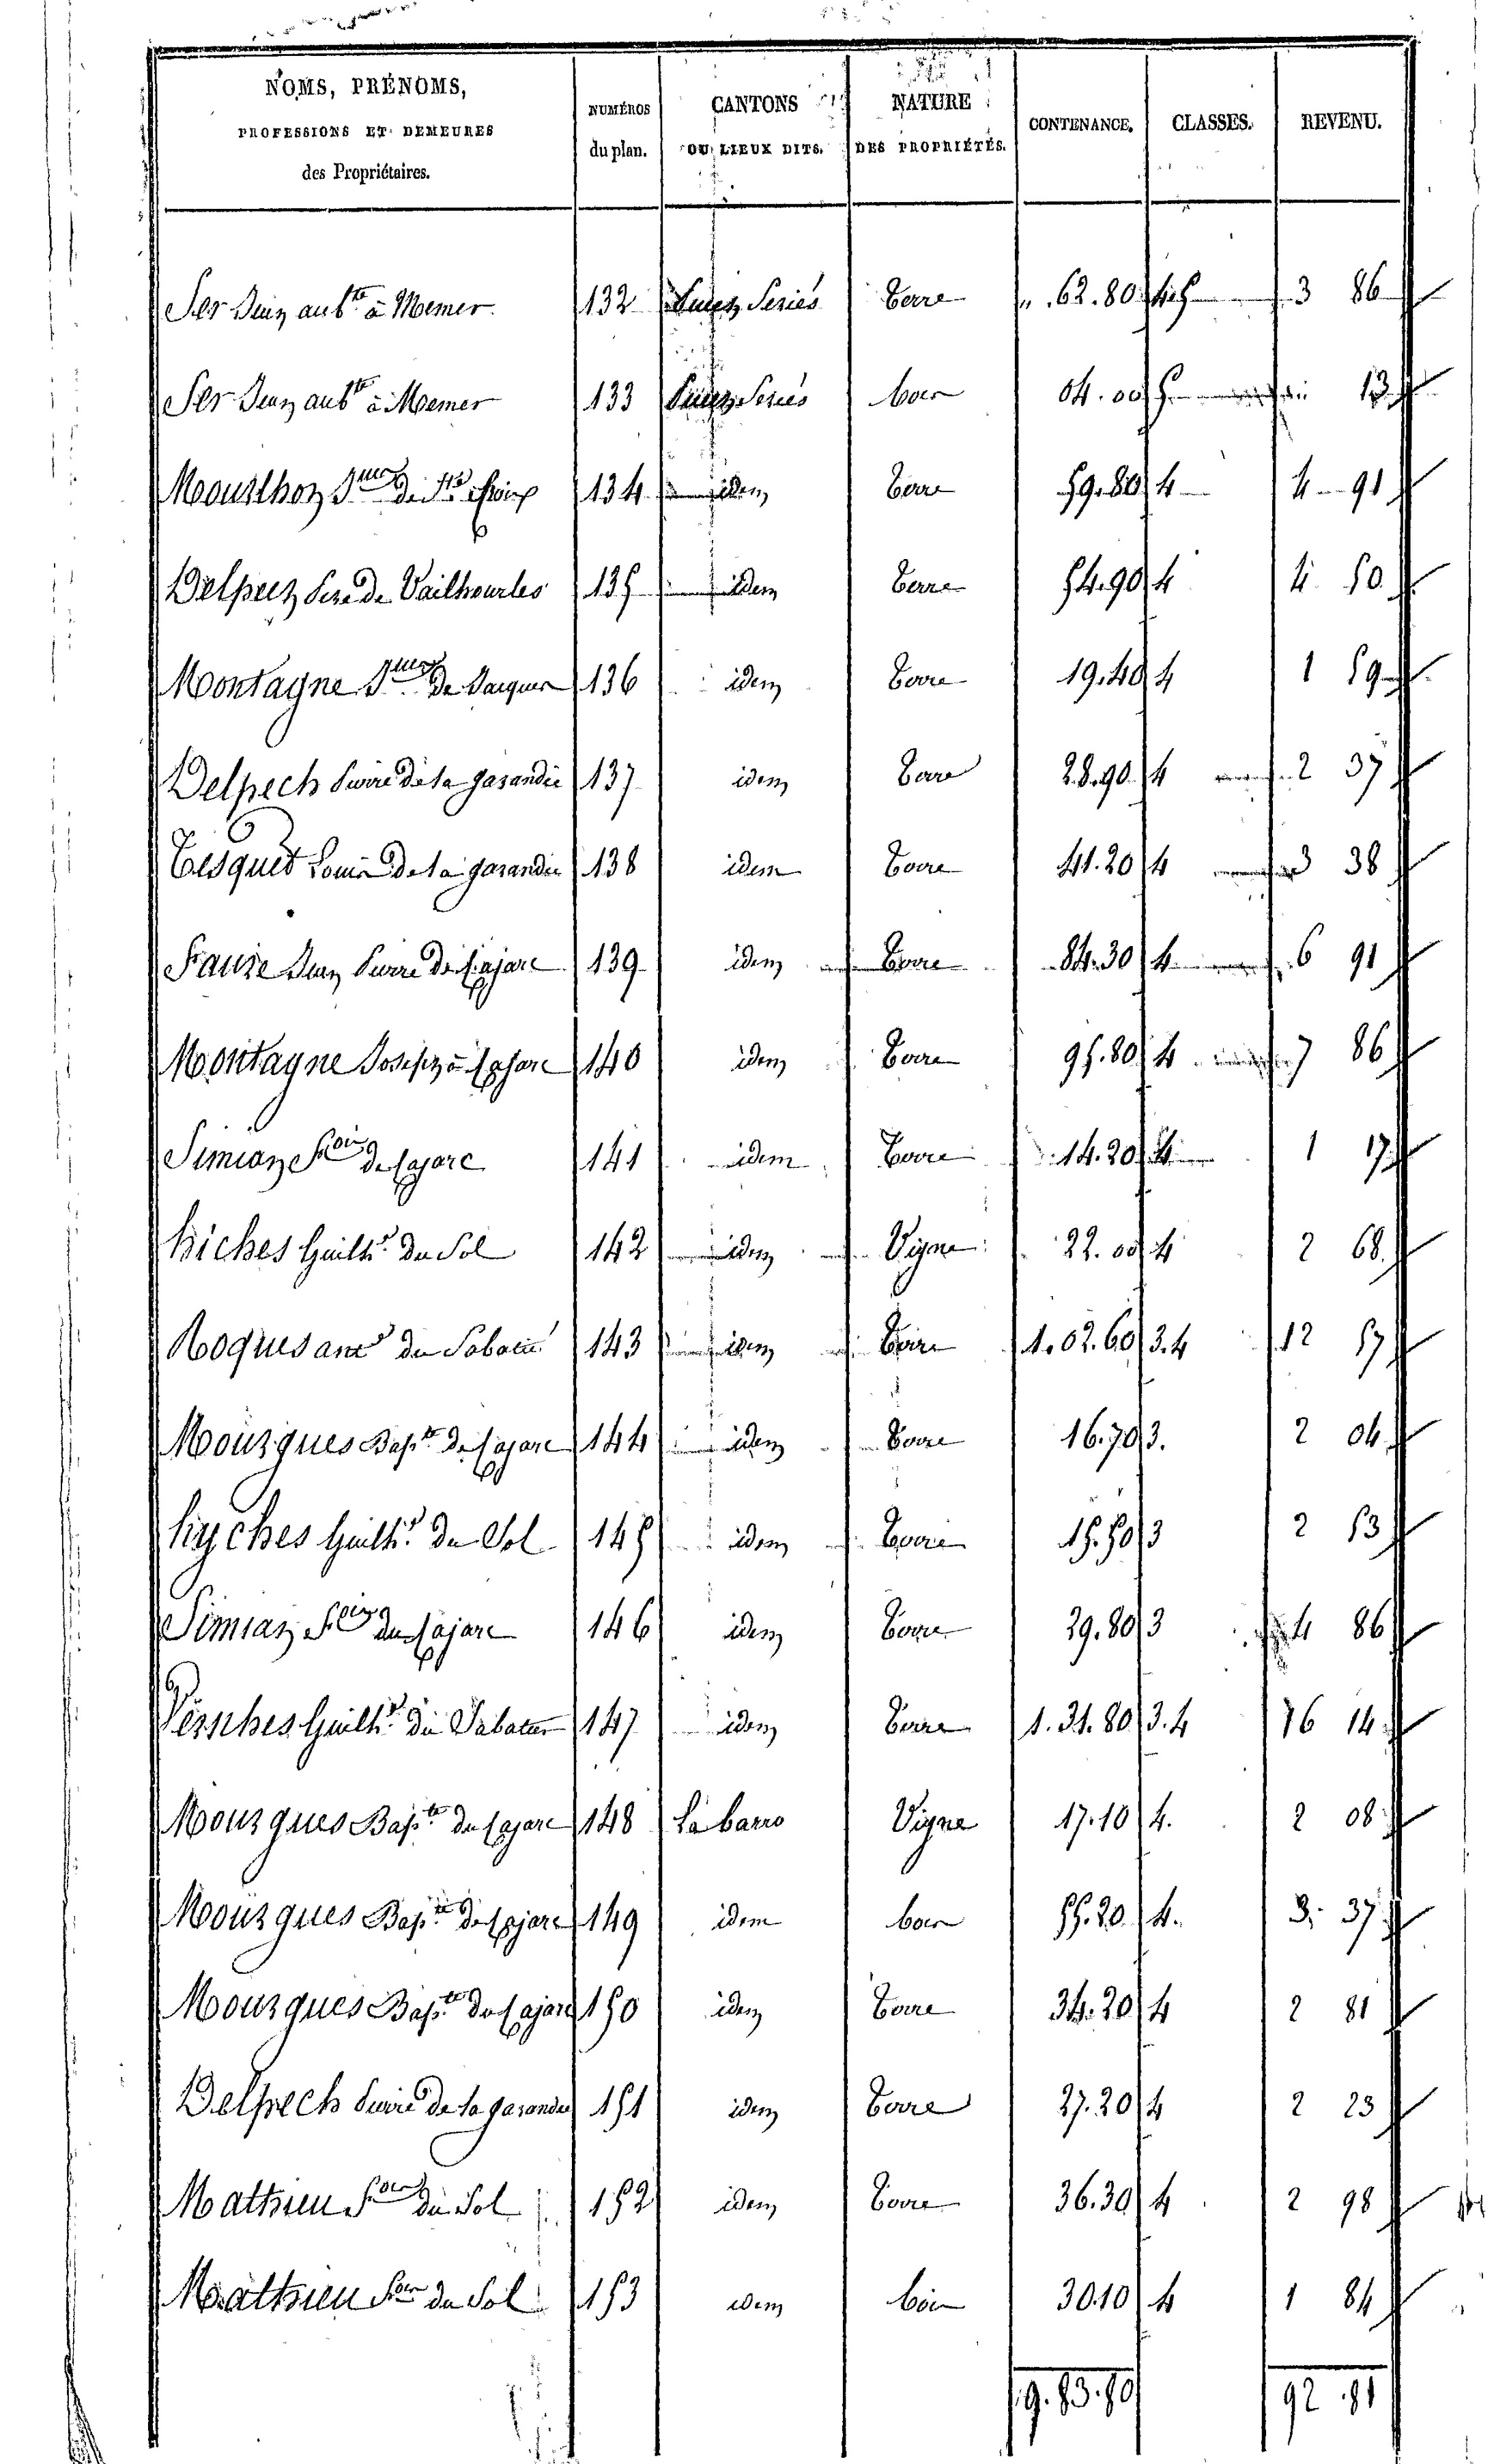 NOMS, PRÉNOMS,
PROFESSIONS ET DEMEURES
des Propriétaires.
NUMÉROS
du plan.
CANTONS
OU LIEUX DITS.
NATURE
DES PROPRIÉTÉS.
CONTENANCE.
CLASSES.
REVENU.
Ser Jean aubte à Memer 132 Series terre 62.80 4.5 3 86
Ser Jean aubte à Memer 133 Series bois 04.00 5 13
de Ste Croix 134 idem terre 59.80 4 4 91
de Vailhourles 135 idem terre 54.90 4 4 50
Montagne de 136 idem terre 19.40 4 1 59
Delpech Pierre de la garandie 137 idem terre 28.90 4 2 37
Tesquet Louis de la garandie 138 idem terre 41.20 4 3 38
Fauze Jean Pierre de Cajarc 139 idem terre 84.30 4 6 91
Montagne Joseph à Cajarc 140 idem terre 95.80 4 7 86
Simian de Cajarc 141 idem terre 14.20 4 1 17
hiches Guilhe du Sol 142 idem Vigne 22.00 4 2 68
Roques ane du 143 idem terre 1.02.60 3.4 12 57
Mourgues Bapte de Cajarc 144 idem terre 16.70 3. 2 04
hyches Guilhe du Sol 145 idem terre 15.50 3 2 53
Simian de Cajarc 146 idem terre 39.80 3 4 86
Guilhe du 147 idem terre 1.31.80 3.4 16 14
Mourgues Bapte de Cajarc 148 La barro Vigne 17.10 4. 2 08
Mourgues Bapte de Cajarc 149 idem bois 55.20 4. 3 37
Mourgues Bapte de Cajarc 150 idem terre 34.20 4 2 81
Delpech Pierre de la garandie 151 idem terre 27.20 4 2 23
Mathieu du Sol 152 idem terre 36.30 4 2 98
Mathieu du Sol 153 idem bois 30.10 4 1 84
9.83.80 92.81